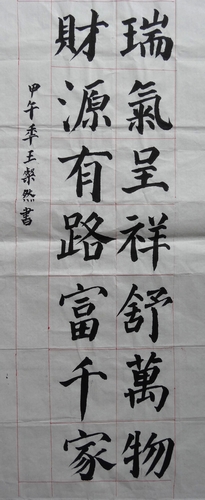 瑞氣呈祥舒萬物
財源有路富千家
甲午年王粲然書